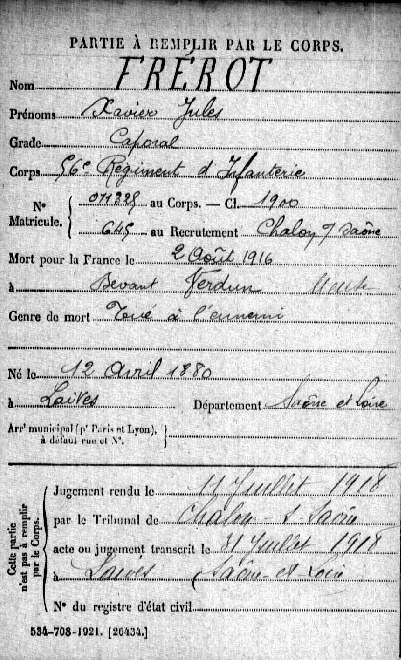 PARTIE À REMPLIR PAR LE CORPS.
Nom FRÉROT
Prénoms Xavier Jules
Grade Caporal
Corps 56e Régiment d'Infanterie
N° Matricule. { au Corps. — Cl. 1900
645 au Recrutement Chalon s/ Saône
Mort pour la France le 2 Août 1916
à Devant Verdun Meuse
Genre de mort Tué à l'ennemi
Né le 12 Avril 1880
à Laives Département Saône et Loire
Arrt municipal (pr Paris et Lyon), }
à défaut rue et N°.
Cette partie n'est pas à remplir par le Corps.
Jugement rendu le 11 Juillet 1918
par le Tribunal de Chalon s Saône
acte ou jugement transcrit le 31 Juillet 1918
à Laives Saône-et-Loire
N° du registre d'état civil
534-708-1921. [26434.]